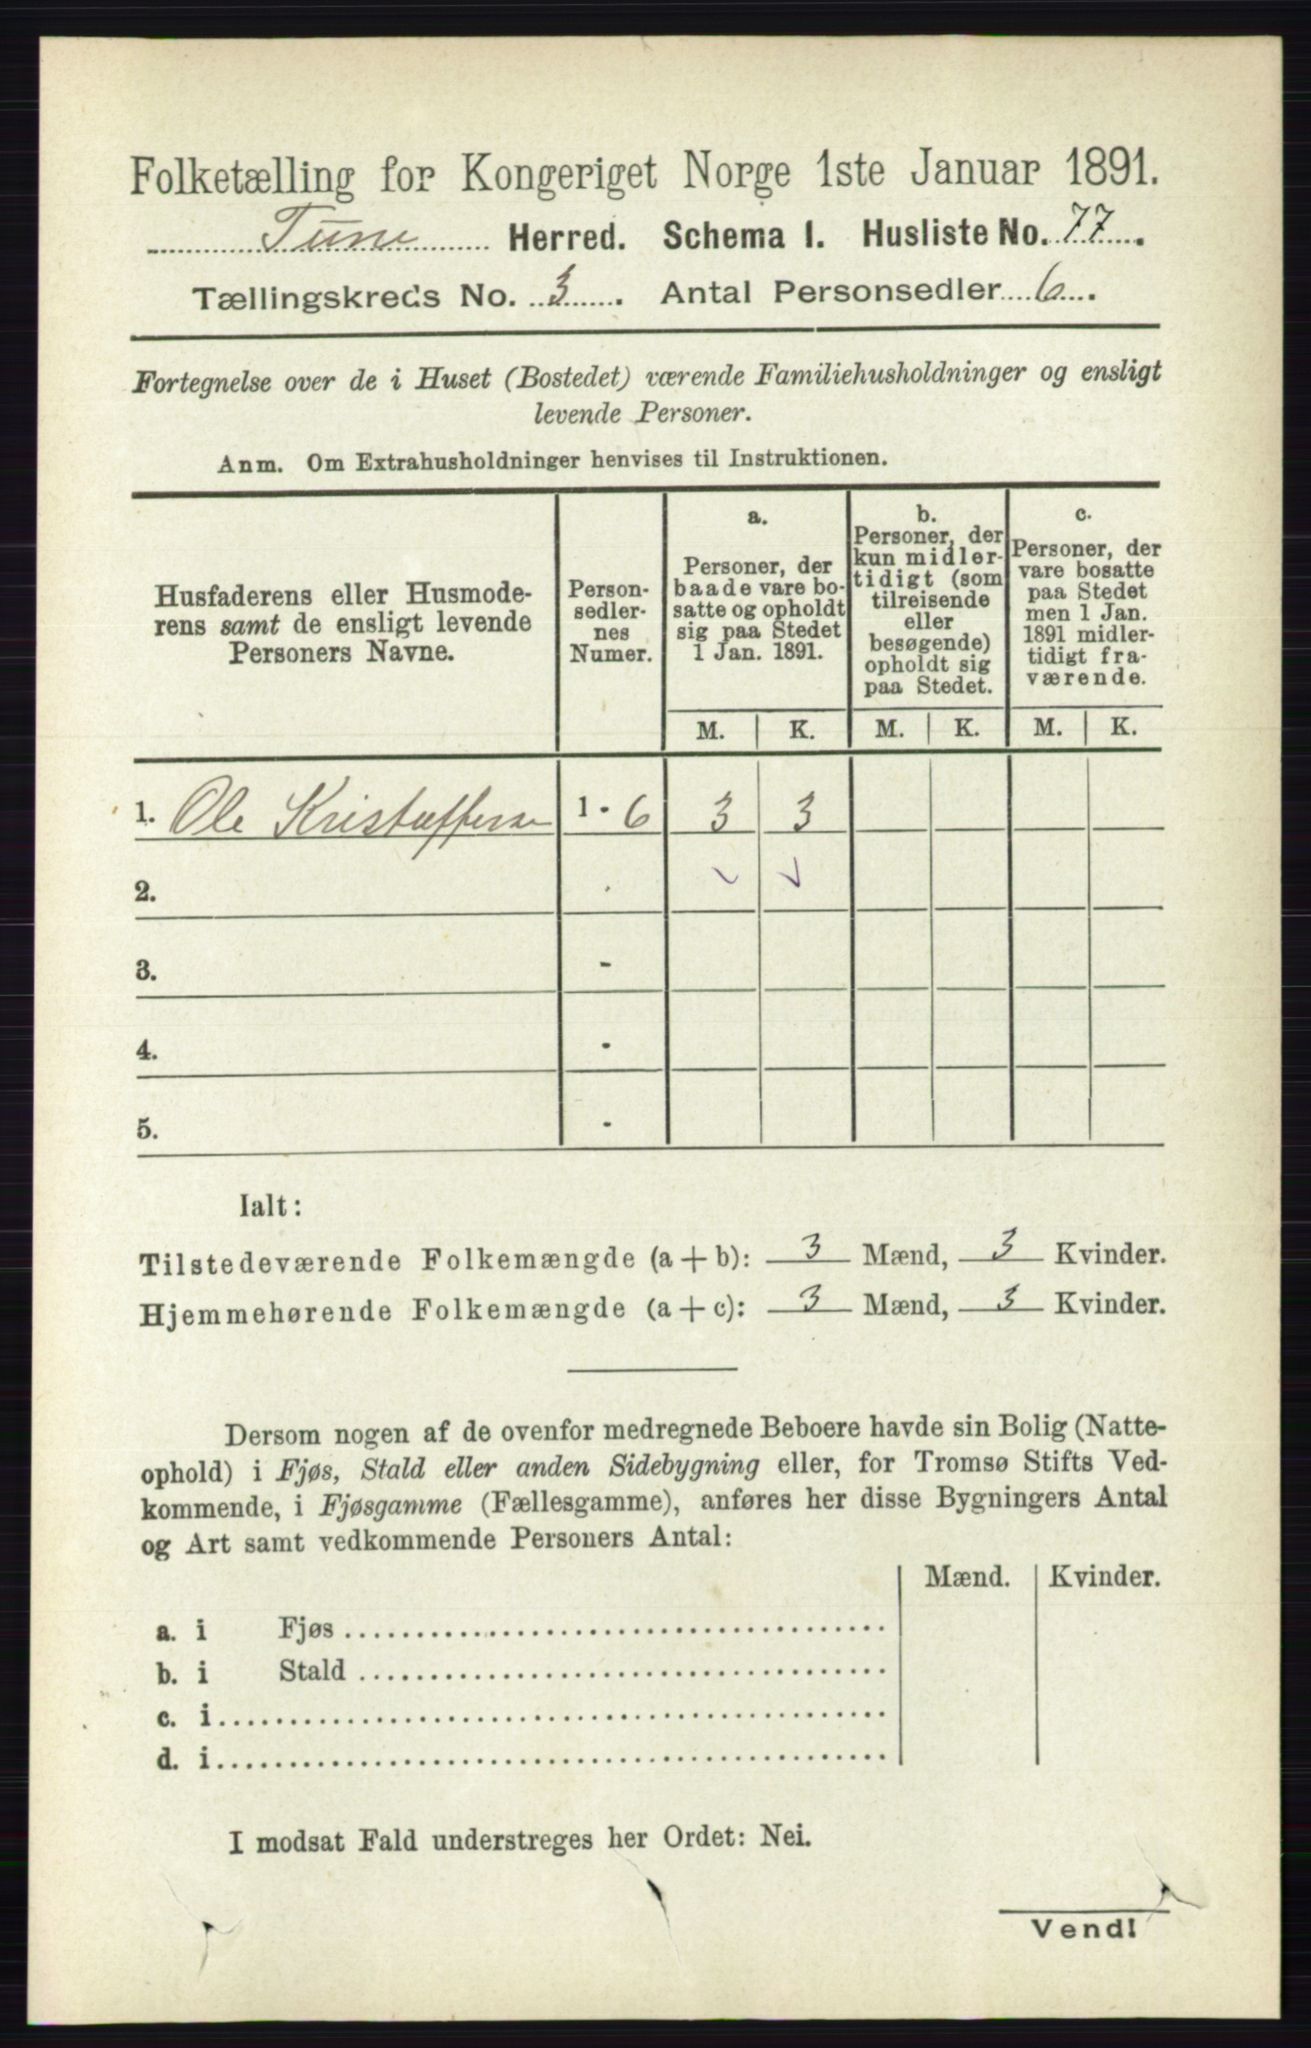 Folketælling for Kongeriget Norge 1ste Januar 1891.
Tune Herred. Schema I. Husliste No. 77.
Tællingskreds No. 3. Antal Personsedler 6.
Fortegnelse over de i Huset (Bostedet) værende Familiehusholdninger og ensligt
levende Personer.
Anm. Om Extrahusholdninger henvises til Instruktionen.
Husfaderens eller Husmode-
rens samt de ensligt levende
Personers Navne.
Person-
sedler-
nes
Numer.
a.
Personer, der
baade vare bo-
satte og opholdt
sig paa Stedet
1 Jan. 1891.
b.
Personer, der
kun midler-
tidigt (som
tilreisende
eller
besøgende)
opholdt sig
paa Stedet.
c.
Personer, der
vare bosatte
paa Stedet
men 1 Jan.
1891 midler-
tidigt fra-
værende.
M. K. M. K. M. K.
1. Ole Kristoffersen 1 - 6 3 3
2. -
3. -
4. -
5. -
Ialt:
Tilstedeværende Folkemængde (a + b): 3 Mænd, 3 Kvinder.
Hjemmehørende Folkemængde (a + c): 3 Mænd, 3 Kvinder.
Dersom nogen af de ovenfor medregnede Beboere havde sin Bolig (Natte-
ophold) i Fjøs, Stald eller anden Sidebygning eller, for Tromsø Stifts Ved-
kommende, i Fjøsgamme (Fællesgamme), anføres her disse Bygningers Antal
og Art samt vedkommende Personers Antal:
Mænd. Kvinder.
a. i Fjøs
b. i Stald
c. i
d. i
I modsat Fald understreges her Ordet: Nei.
Vend!